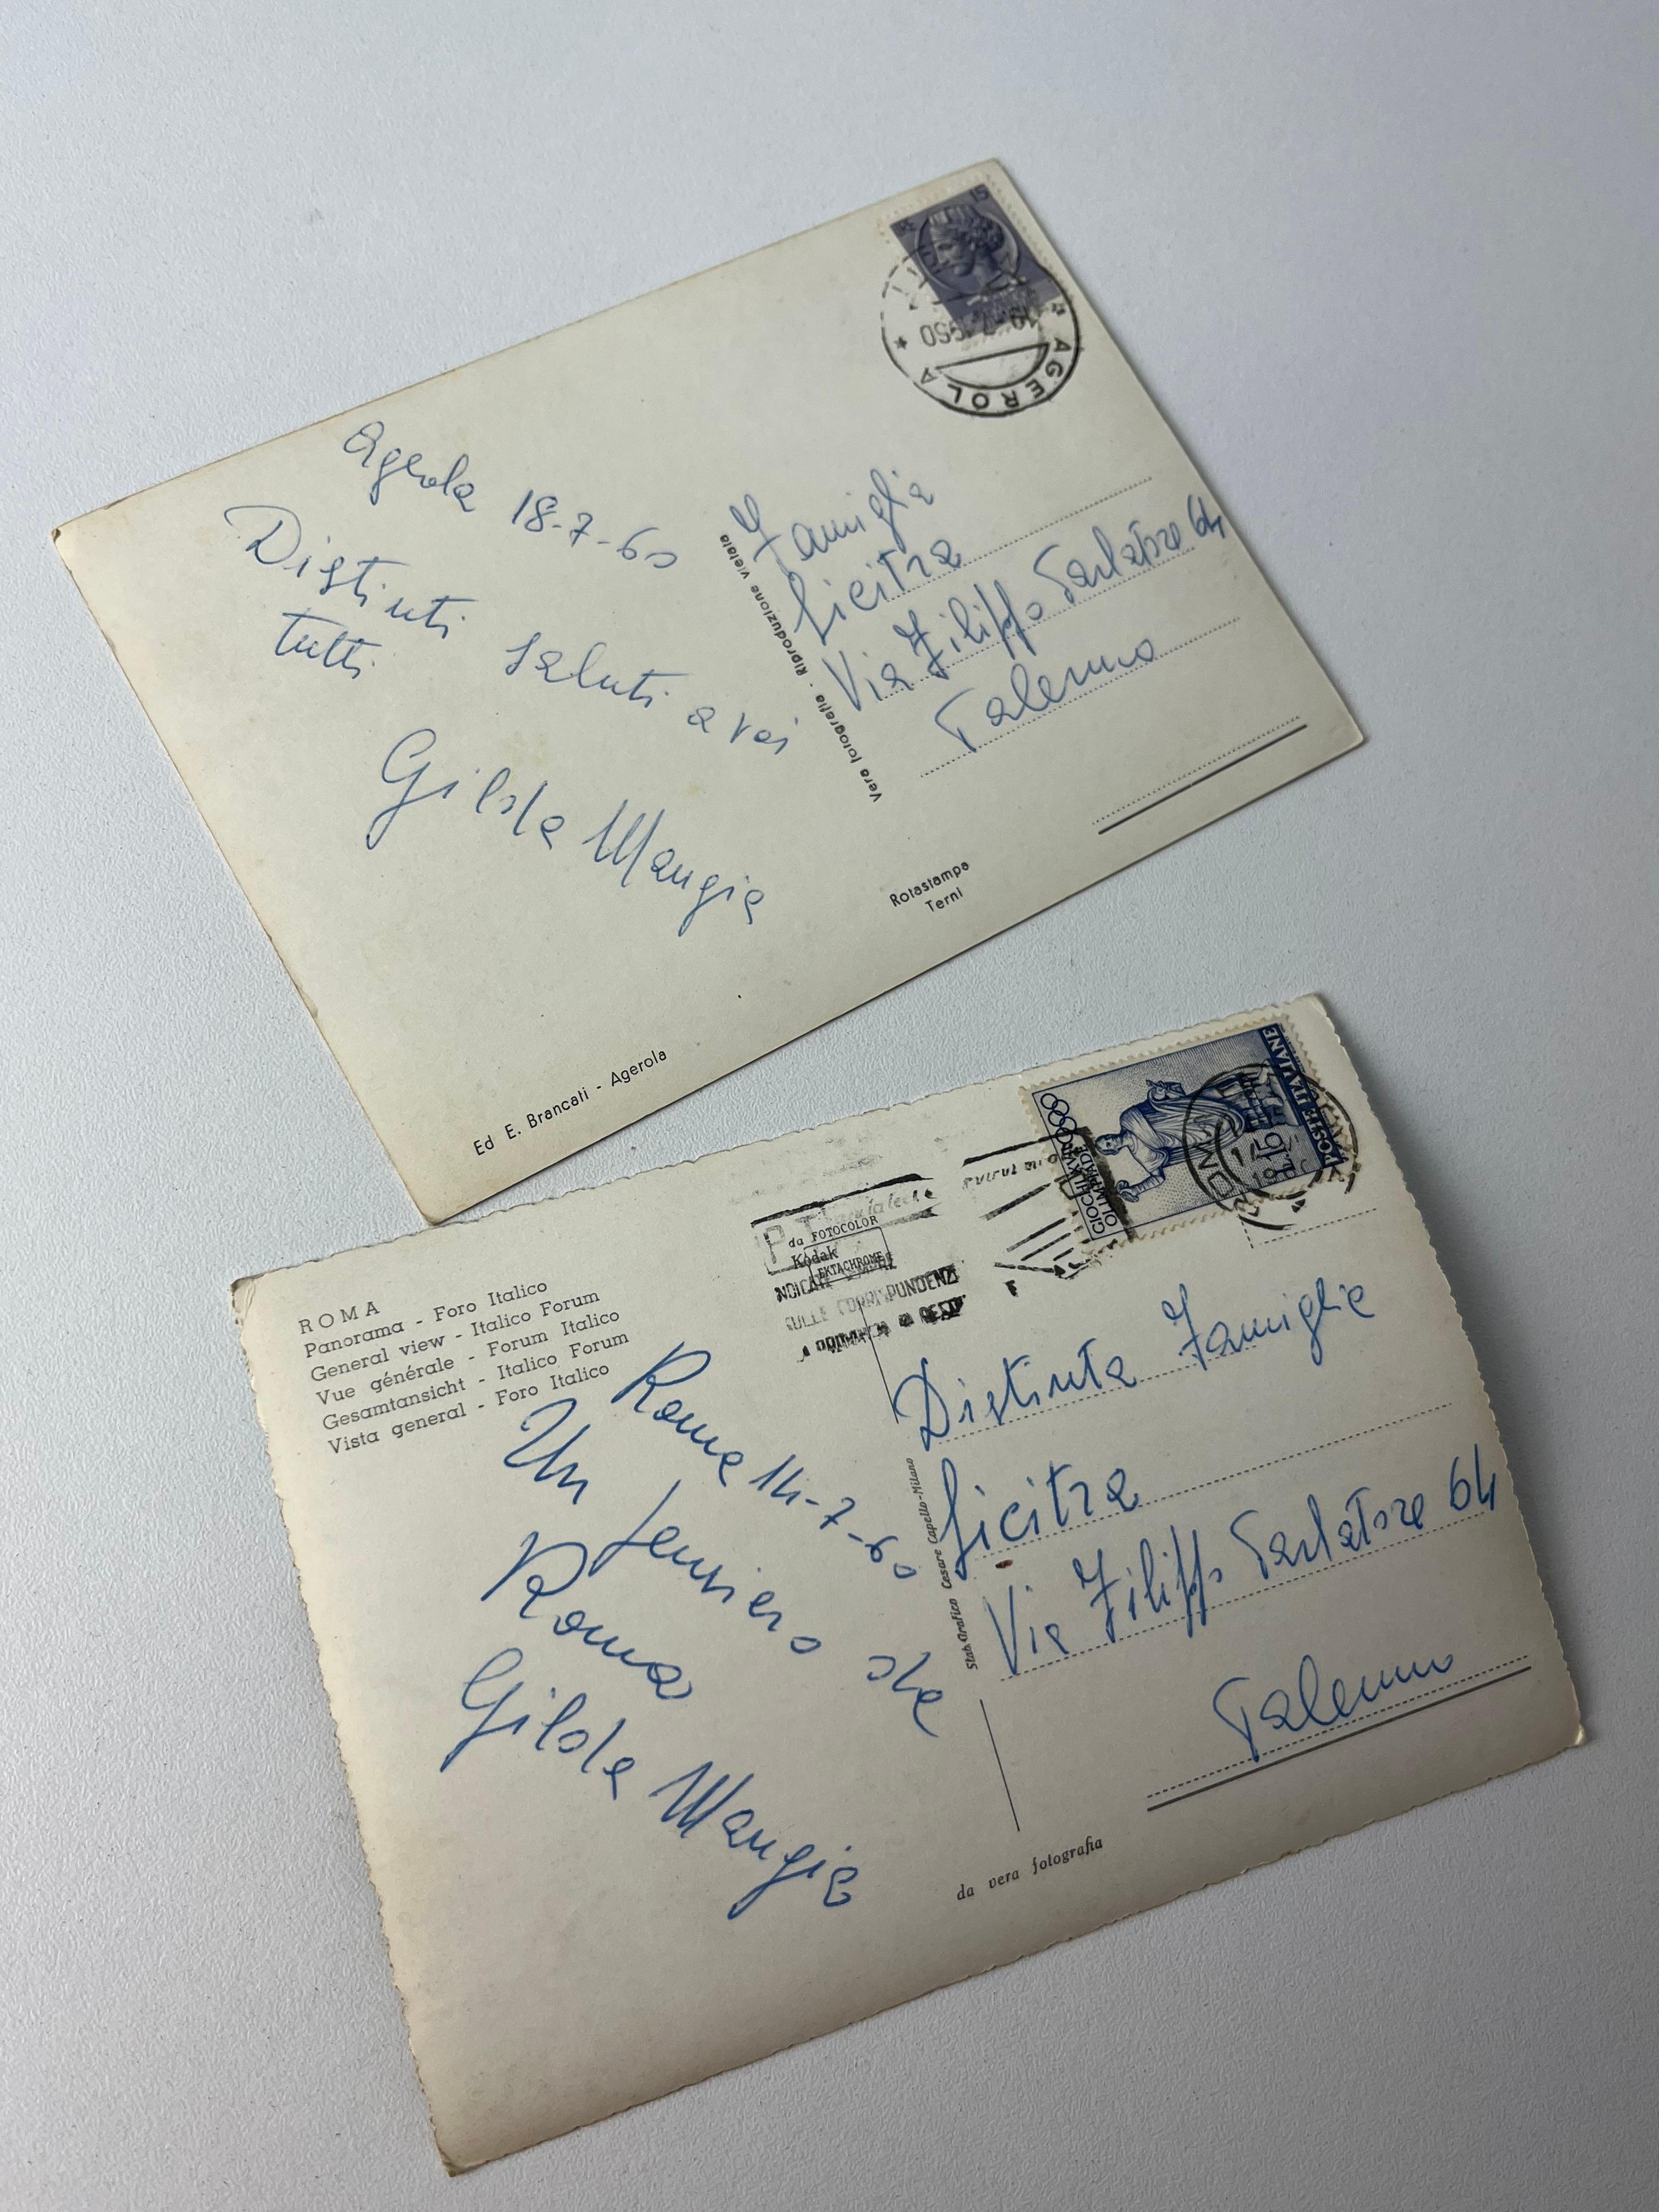 15
AGEROLA
Agerola 18-7-60
Distinti saluti a voi
tutti
Gilda Mangia
Vera fotografia - Riproduzione vietata
Famiglia
Licitra
Via Filippo Parlatore 64
Palermo
Rotastampa
Terni
Ed E. Brancati - Agerola
ROMA
Panorama - Foro Italico
General view - Italico Forum
Vue générale - Forum Italico
Gesamtansicht - Italico Forum
Vista general - Foro Italico
da FOTOCOLOR
Kodak
EKTACHROME
POSTE ITALIANE
L.15
GIOCHI XVII
OLIMPIADE
Roma 14-7-60
Un pensiero da
Roma
Gilda Mangia
Stab. Grafico Cesare Capello-Milano
Distinta Famiglia
Licitra
Via Filippo Parlatore 64
Palermo
da vera fotografia